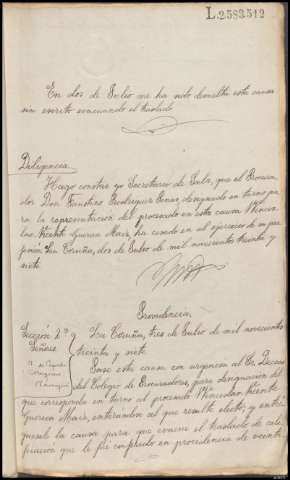 L.2583512
En dos de Julio me ha sido devuelta esta causa
sin escrito evacuando el traslado
Diligencia
Hago constar yo Secretario de Sala, que el Procura
dor Don Faustino Rodriguez designado en turno pa
ra la representación del procesado en esta causa Wences
lao Vicente Guerra Marz, ha cesado en el ejercicio de su pro
fesión La Coruña, dos de Julio de mil novecientos treinta y
siete
Providencia
Sección 2ª La Coruña, tres de Julio de mil novecientos
Señores treinta y siete
Pase esta causa con urgencia al Sr. Decano
del Colegio de Procuradores, para designación del
que corresponda en turno al procesado Wenceslao Vicente
Guerra Marz, enterándose al que resulte electo, y entré
guesele la causa para que evacue el traslado de cali
ficación que le fué conferido en providencia de veinti